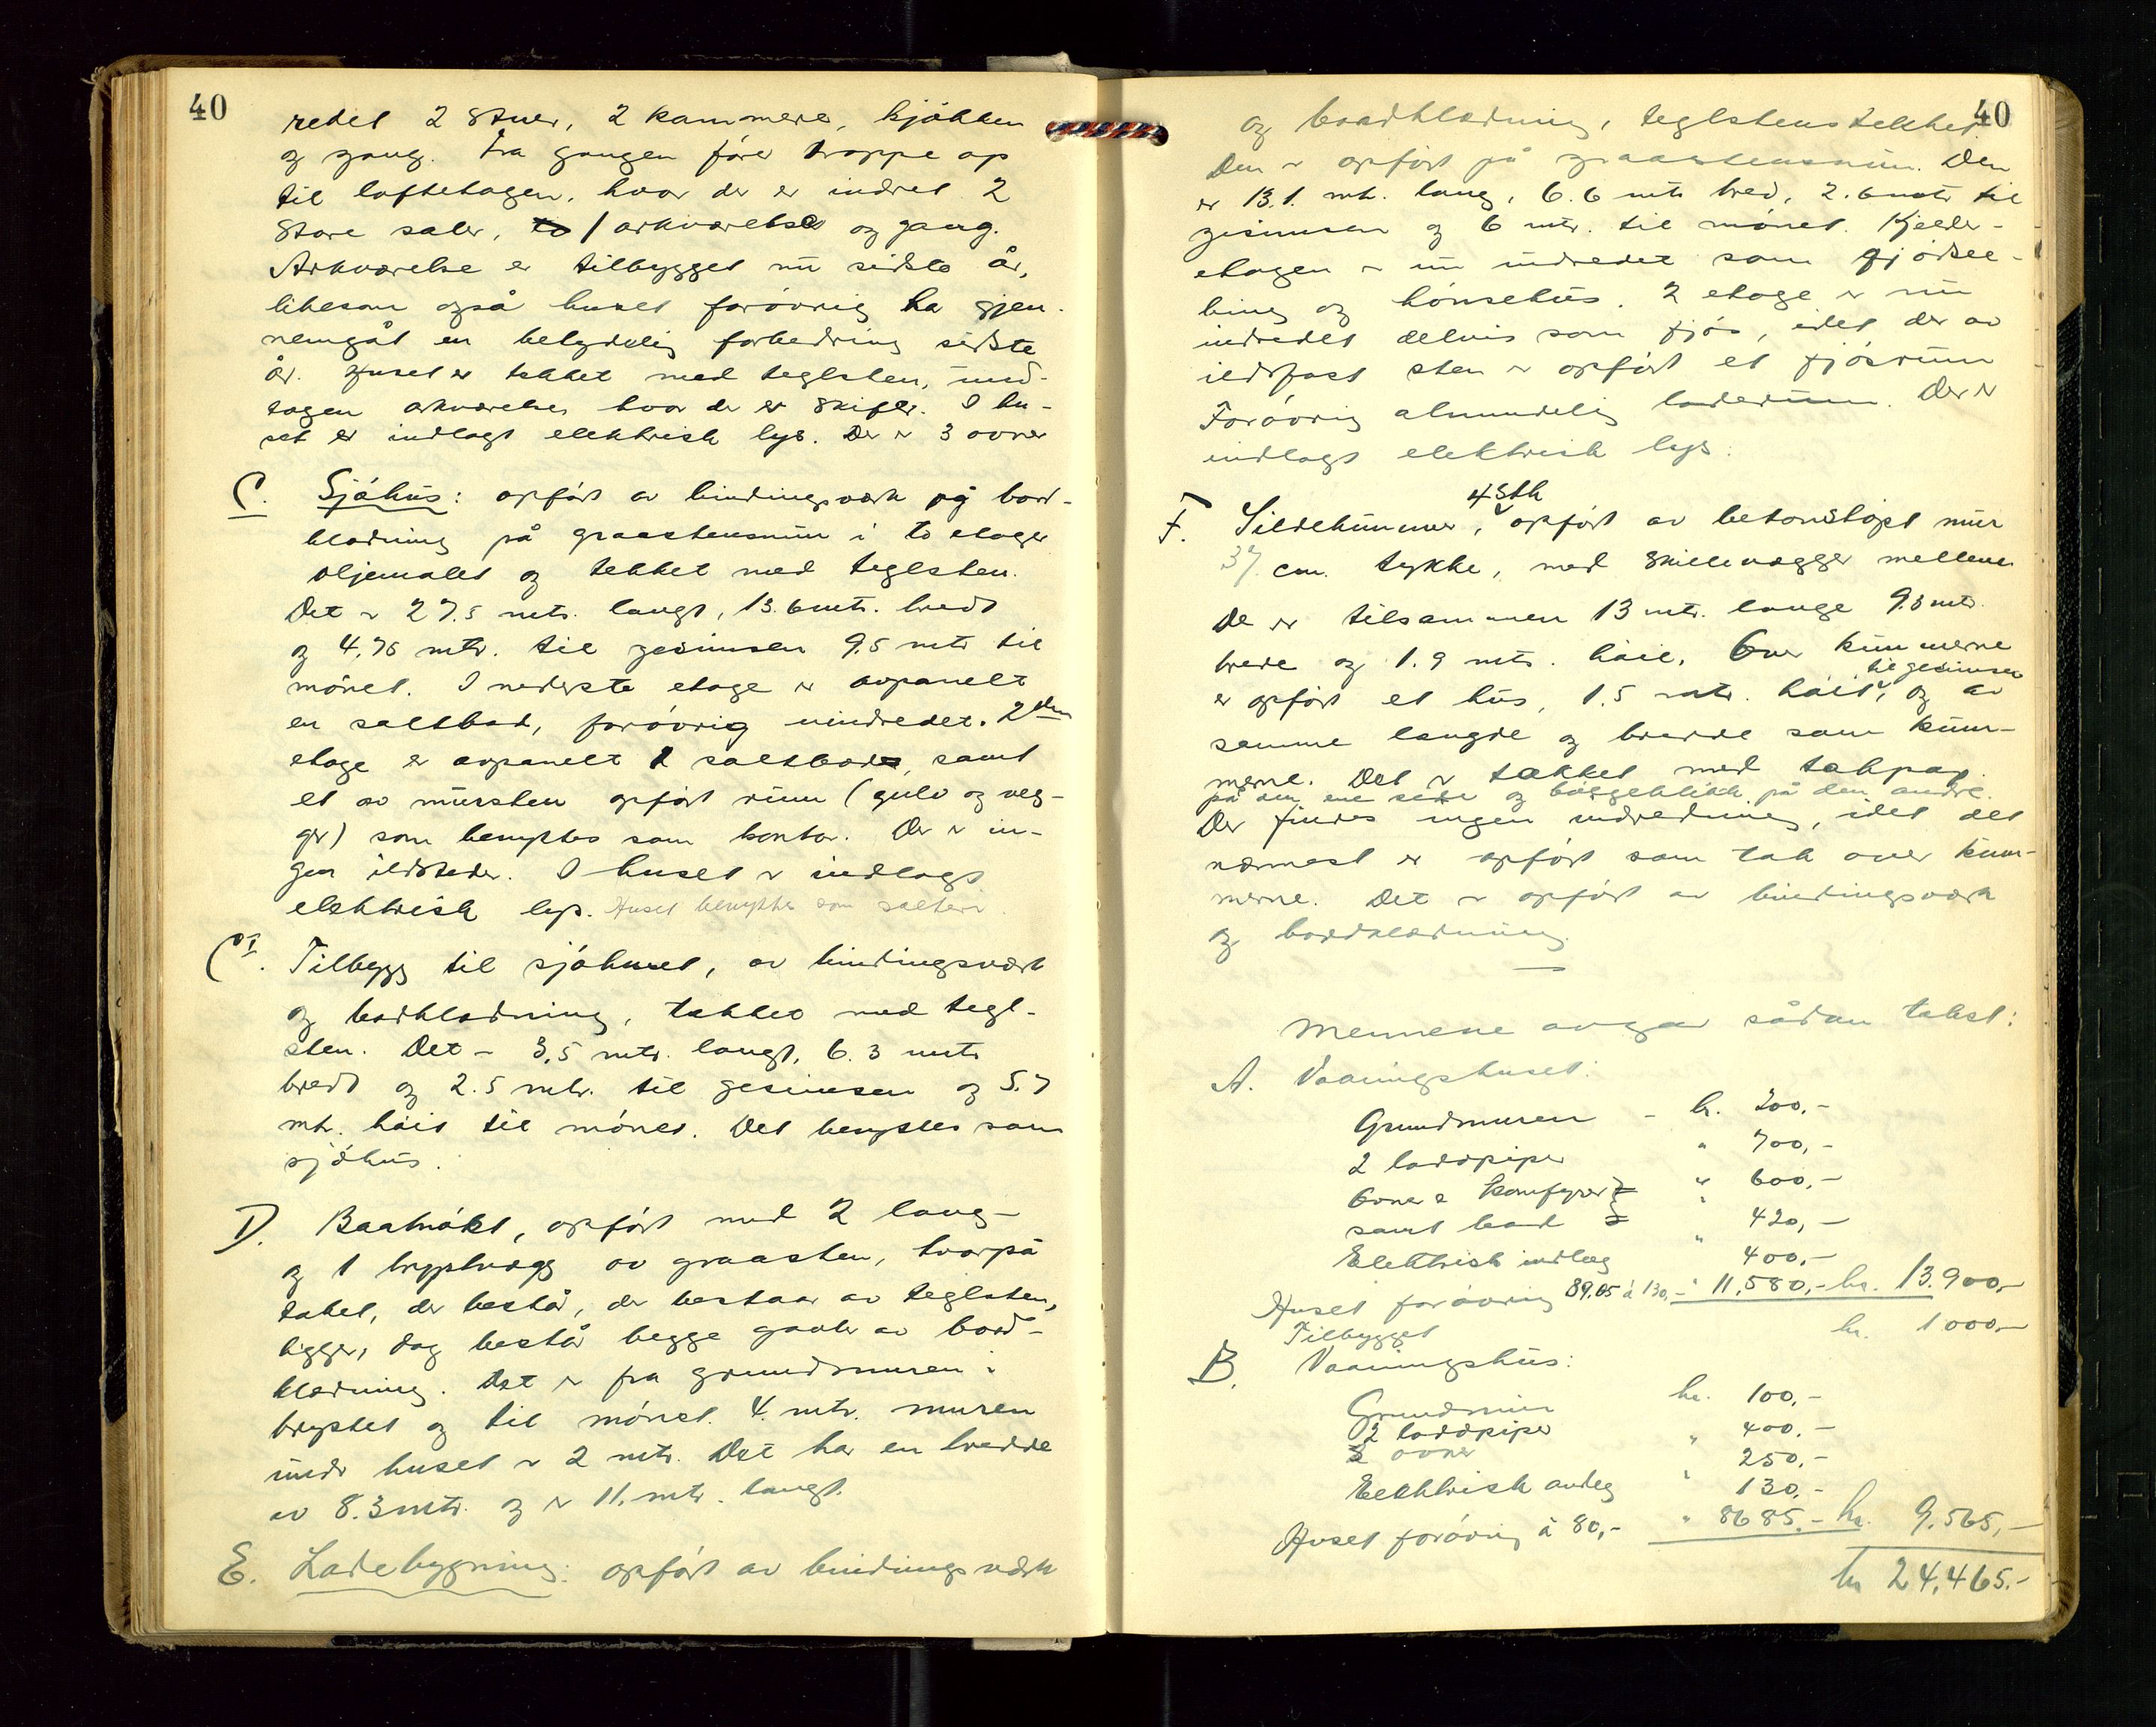 40
redet 2 stuer, 2 kammere, kjökken
og gang. Fra gangen förer trappe op
til loftetagen, hvor der er indret 2
store saler, to 1 arkværelse og gang.
Arkværelse er tilbygget nu sidste år,
likesom også huset forövrig ha gjen-
nemgåt en betydelig forbedring sidste
år. Huset er tekket med teglsten, und-
tagen arkværelse hvor de er skifer. I hu-
set er indlagt elektrisk lys. Der er 3 ovner
C. Sjöhus: opfört av bindingsverk og bord-
klædning på graastensmur i to etager
oljemalet og tekket med teglsten.
Det er 27.5 mtr. langt, 13.6 mtr. bredt
og 4.75 mtr. til gesimsen 9.5 mtr til
mönet. I nederste etage er avpanelt
en saltbod, forövrig uindredet. 2den
etage er avpanelt 1 saltbod, samt
et av mursten opfört rum (gulv og veg-
ger) som benyttes som kontor. Der er in-
gen ildsteder. I huset er indlagt
elektrisk lys. Huset benyttes som salteri.
C I. Tilbygg til sjöhuset, av bindingsverk
og bordklædning, tekket med tegl-
sten. Det er 3,5 mtr. langt, 6.3 mtr
bredt og 2.5 mtr. til gesimsen og 5.7
mtr. höit til mönet. Det benyttes som
sjöhus.
D. Baatnöst, opfört med 2 lang-
og 1 brystvægg av graasten, hvorpå
taket, der består, der bestaar av teglsten,
ligger, dog består begge gavler av bord-
klædning. Det er fra grundmuren i
brystet og til mönet. 4. mtr. muren
under huset er 2 mtr. Det har en bredde
av 8.3 mtr. og er 11. mtr. langt.
E. Ladebygning: opfört av bindingsverk
40
og bordklædning, teglstenstekket.
Den er opfört på graastensmur. Den
er 13.1. mtr. lang, 6.6 mtr bred, 2.6 mtr til
gesimsen og 6 mtr. til mönet. Kjelder-
etagen er nu indredet som gjödsel-
bing og hönsehus. 2 etage er nu
indredet delvis som fjös, idet der av
ildfast sten er opfört et fjösrum
Forövrig almindelig laderum. Der er
indlagt elektrisk lys.
F. Sildekummer, 4 stk opfört av betonstöpt mur
37 cm. tykke, med skillevægger mellem
De er tilsammen 13 mtr. lange 9.3 mtr.
brede og 1.9 mtr. höie. Over kummerne
er opfört et hus, 1.5 mtr. höit, til gesimsen og av
samme længde og bredde som kum-
merne. Det er tækket med takpap
på den ene side og bölgeblikk på den andre.
Der findes ingen indredning, idet det
nærmest er opfört som tak over kum-
merne. Det er opfört av bindingsverk
og bordklædning.
Mennene avgav sådan takst:
A. Vaaningshuset:
Grundmuren - kr. 200,-
2 loddpiper " 700,-
Ovner & komfyrer " 600,-
samt bad " 420,-
Elektrisk indlæg " 400,-
Huset forövrig 89.05 á 130,- " 11,580,- kr. 13.900,-
Tilbygget kr. 1000,-
B. Vaaningshus:
Grundmur kr. 100,-
2 loddpiper " 400,-
3 ovner 250,-
Eelktrisk anlæg " 130,-
Huset forövrig á 80,- " 8685.- kr. 9.565,-
kr 24,465.-